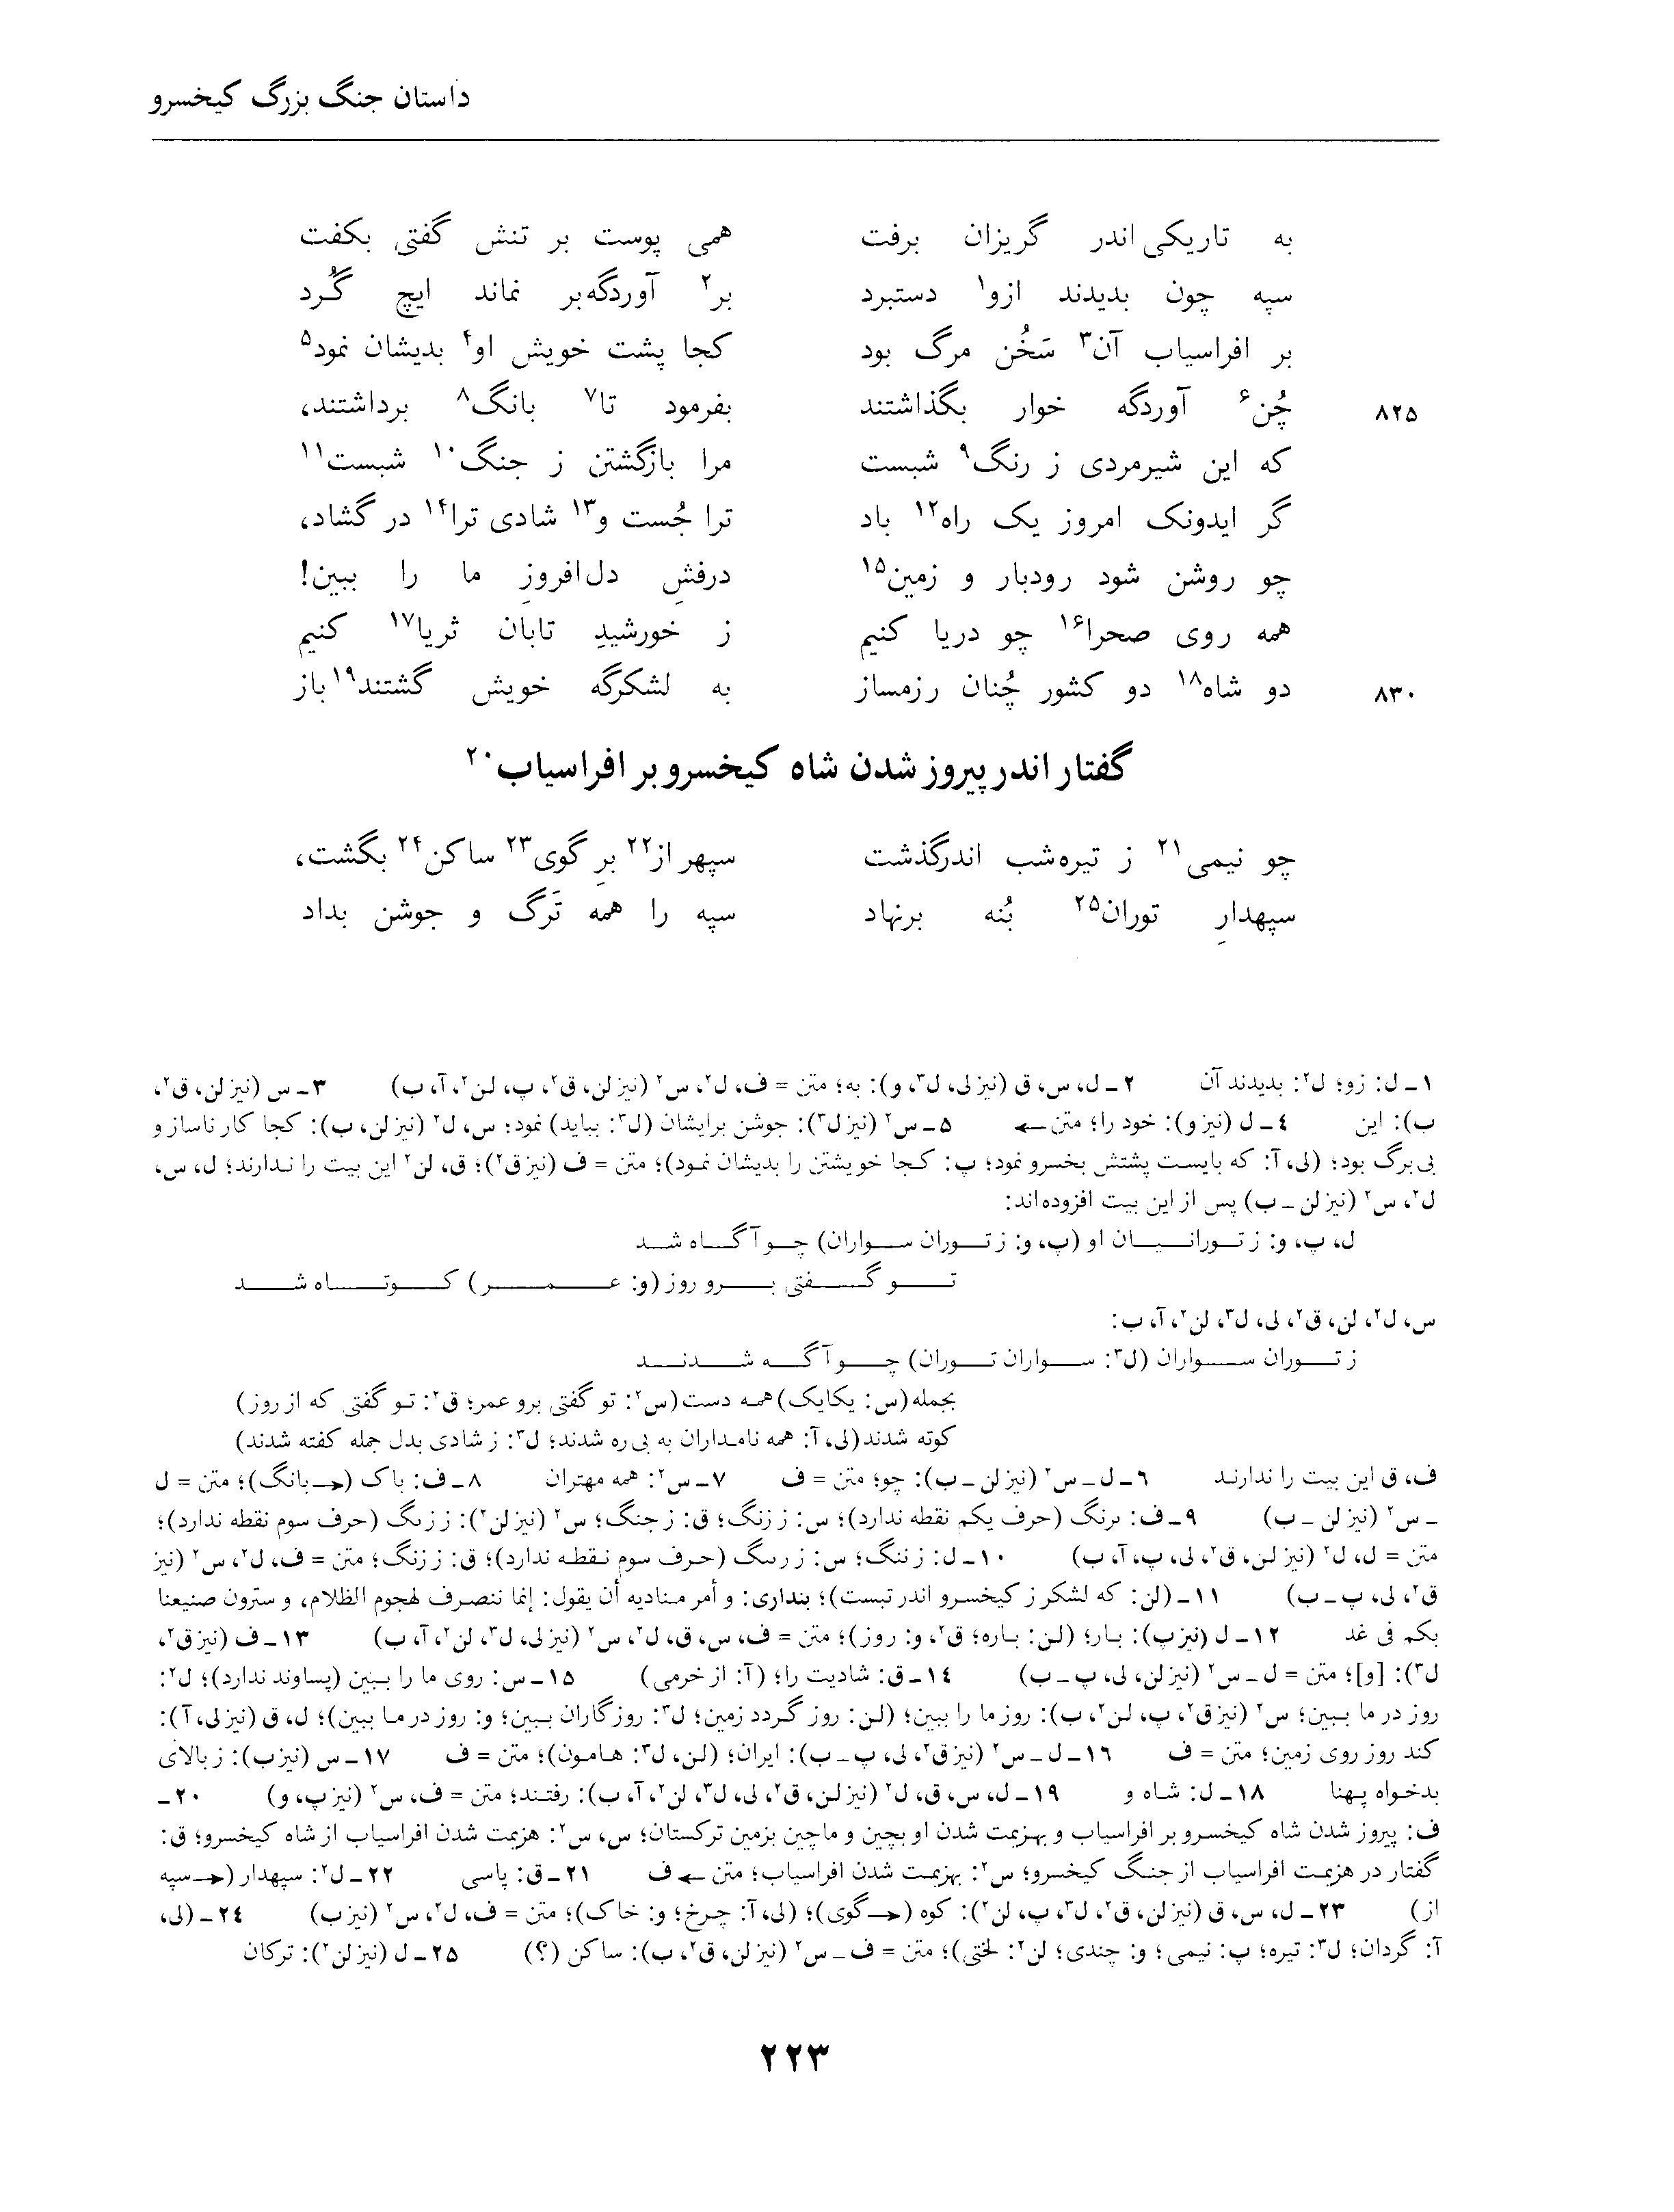 داستان جنگ بزرگ کیخسرو
به تاریکی اندر گریزان برفت همی پوست بر تنش گفتی بکفت
سپه چون بدیدند ازو۱ دستبرد بر۲ آوردگه‌بر نماند ایچ گُرد
بر افراسیاب آن۳ سَخُن مرگ بود کجا پشت خویش او۴ بدیشان نمود۵
۸۲۵ چُن۶ آوردگه خوار بگذاشتند بفرمود تا۷ بانگ۸ برداشتند،
که این شیرمردی ز رنگ۹ شبست مرا بازگشتن ز جنگ۱۰ شبست۱۱
گر ایدونک امروز یک راه۱۲ باد ترا جُست و۱۳ شادی ترا۱۴ در گشاد،
چو روشن شود رودبار و زمین۱۵ درفشِ دل‌افروزِ ما را ببین!
همه روی صحرا۱۶ چو دریا کنیم ز خورشیدِ تابان ثریا۱۷ کنیم
۸۳۰ دو شاه۱۸ دو کشور چُنان رزمساز به لشکرگه خویش گشتند۱۹ باز
گفتار اندر پیروز شدن شاه کیخسرو بر افراسیاب۲۰
چو نیمی۲۱ ز تیره‌شب اندرگذشت سپهر از۲۲ برِ گوی۲۳ ساکن۲۴ بگشت،
سپهدارِ توران۲۵ بُنه برنهاد سپه را همه تَرگ و جوشن بداد
۱ـ ل: زو؛ ل۲: بدیدند آن ۲ـ ل، س، ق (نیز لی، ل۳، و): به؛ متن = ف، ل۲، س۲ (نیز لن، ق۲، پ، لن۲، آ، ب) ۳ـ س (نیز لن، ق۲،
ب): این ٤ـ ل (نیز و): خود را؛ متن← ۵ـ س۲ (نیز ل۳): جوشن برایشان (ل۳: بباید) نمود؛ س، ل۲ (نیز لن، ب): کجا کار ناساز و
بی‌برگ بود؛ (لی، آ: که بایست پشتش بخسرو نمود؛ پ: کجا خویشتن را بدیشان نمود)؛ متن = ف (نیز ق۲)؛ ق، لن۲ این بیت را ندارند؛ ل، س،
ل۲، س۲ (نیز لن ـ ب) پس از این بیت افزوده‌اند:
ل، پ، و: ز تورانیان او (پ، و: ز توران سواران) چو آگاه شد
تو گفتی برو روز (و: عمر) کوتاه شد
س، ل۲، لن، ق۲، لی، ل۳، لن۲، آ، ب:
ز توران سواران (ل۳: سواران توران) چو آگه شدند
بجمله (س: یکایک) همه دست (س۲: تو گفتی برو عمر؛ ق۲: تو گفتی که از روز)
کوته شدند (لی، آ: همه نامداران به بی ره شدند؛ ل۳: ز شادی بدل جمله کفته شدند)
ف، ق این بیت را ندارند ٦ـ ل ـ س۲ (نیز لن ـ ب): چو؛ متن = ف ۷ـ س۲: همه مهتران ۸ـ ف: باک (←بانگ)؛ متن = ل
ـ س۲ (نیز لن ـ ب) ۹ـ ف: ٮرنگ (حرف یکم نقطه ندارد)؛ س: ز زنگ؛ ق: ز جنگ؛ س۲ (نیز لن۲): ز زٮگ (حرف سوم نقطه ندارد)؛
متن = ل، ل۲ (نیز لن، ق۲، لی، پ، آ، ب) ۱۰ـ ل: ز ننگ؛ س: ز رٮگ (حرف سوم نقطه ندارد)؛ ق: ز زنگ؛ متن = ف، ل۲، س۲ (نیز
ق۲، لی، پ ـ ب) ۱۱ـ (لن: که لشکر ز کیخسرو اندر تبست)؛ بنداری: و أمر منادیه أن یقول: إنما ننصرف لهجوم الظلام، و سترون صنیعنا
بکم فی غد ۱۲ـ ل (نیز پ): بار؛ (لن: باره؛ ق۲، و: روز)؛ متن = ف، س، ق، ل۲، س۲ (نیز لی، ل۳، لن۲، آ، ب) ۱۳ـ ف (نیز ق۲،
ل۳): [و]؛ متن = ل ـ س۲ (نیز لن، لی، پ ـ ب) ۱٤ـ ق: شادیت را؛ (آ: از خرمی) ۱۵ـ س: روی ما را ببین (پساوند ندارد)؛ ل۲:
روز در ما ببین؛ س۲ (نیز ق۲، پ، لن۲، ب): روز ما را ببین؛ (لن: روز گردد زمین؛ ل۳: روزگاران ببین؛ و: روز در ما ببین)؛ ل، ق (نیز لی، آ):
کند روز روی زمین؛ متن = ف ۱٦ـ ل ـ س۲ (نیز ق۲، لی، پ ـ ب): ایران؛ (لن، ل۳: هامون)؛ متن = ف ۱۷ـ س (نیز ب): ز بالای
بدخواه پهنا ۱۸ـ ل: شاه و ۱۹ـ ل، س، ق، ل۲ (نیز لن، ق۲، لی، ل۳، لن۲، آ، ب): رفتند؛ متن = ف، س۲ (نیز پ، و) ۲۰ـ
ف: پیروز شدن شاه کیخسرو بر افراسیاب و بهزیمت شدن او بچین و ماچین بزمین ترکستان؛ س، س۲: هزیمت شدن افراسیاب از شاه کیخسرو؛ ق:
گفتار در هزیمت افراسیاب از جنگ کیخسرو؛ س۲: بهزیمت شدن افراسیاب؛ متن ← ف ۲۱ـ ق: پاسی ۲۲ـ ل۲: سپهدار (←سپه
از) ۲۳ـ ل، س، ق (نیز لن، ق۲، ل۳، پ، لن۲): کوه (←گوی)؛ (لی، آ: چرخ؛ و: خاک)؛ متن = ف، ل۲، س۲ (نیز ب) ۲٤ـ (لی،
آ: گردان؛ ل۳: تیره؛ پ: نیمی؛ و: چندی؛ لن۲: لختی)؛ متن = ف ـ س۲ (نیز لن، ق۲، ب): ساکن (؟) ۲۵ـ ل (نیز لن۲): ترکان
۲۲۳